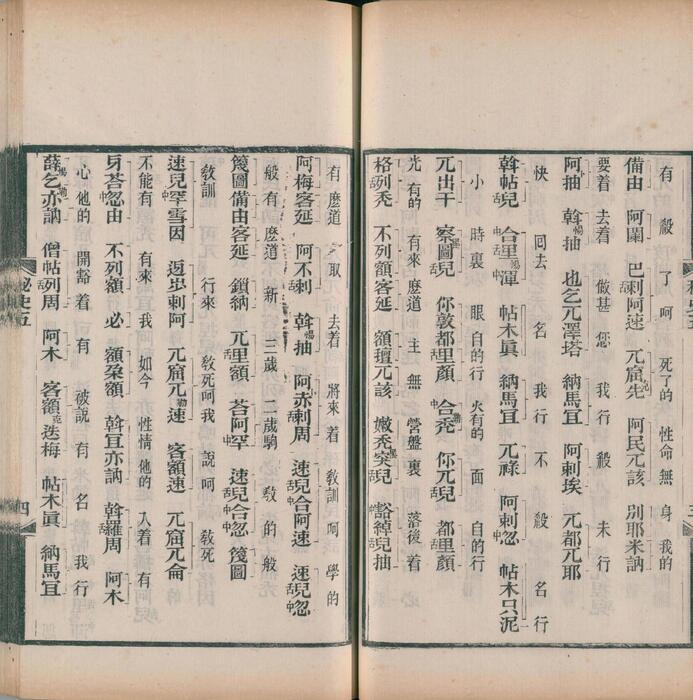 有 殺 了呵 死了的 性命無 身我的
備由 阿闌 巴剌阿速 兀窟先 阿民兀該 別耶米訥
要着 去着 做甚 您 我行 殺 未行
阿抽 斡抽 也乞兀澤塔 納馬宜 阿剌埃 兀都兀耶
快 回去 名 我行 不 殺 名行
斡帖兒 合里渾 帖木眞 納馬宜 兀祿 阿剌忽 帖木只泥
小 時裏 眼自的行 火有的 面 自的行
兀出干 察圖兒 你敦都里顏 合禿 你兀兒 都里顏
光有的 有來 麽道 主無 營盤裏 落後着
格列禿 不列額客延 額壇兀該 嫩禿突兒 豁綽兒抽
有麽道 取 去着 將來着 敎訓呵 學的
阿梅客延 阿不剌 斡抽 阿赤剌周 速兒合阿速 速兒忽
般有麽道 新 三歲 二歲駒 敎的般
篾圖備由客延 鎖納 兀里額 荅阿罕 速兒合忽 篾圖
敎訓 行來 敎死呵我 說呵 敎死
速兒罕雪因 步剌阿 兀窟兀速 客額速 兀窟兀侖
不能有 有來 我 如今 性情他的 入着 有
身荅忽由 不列額 必 額朶額 斡宜亦訥 斡羅周 阿木
心他的 開豁着 有 被說有 名 我行
薛乞亦訥 僧帖列周 阿木 客額迭梅 帖木眞 納馬宜
秘史五 四